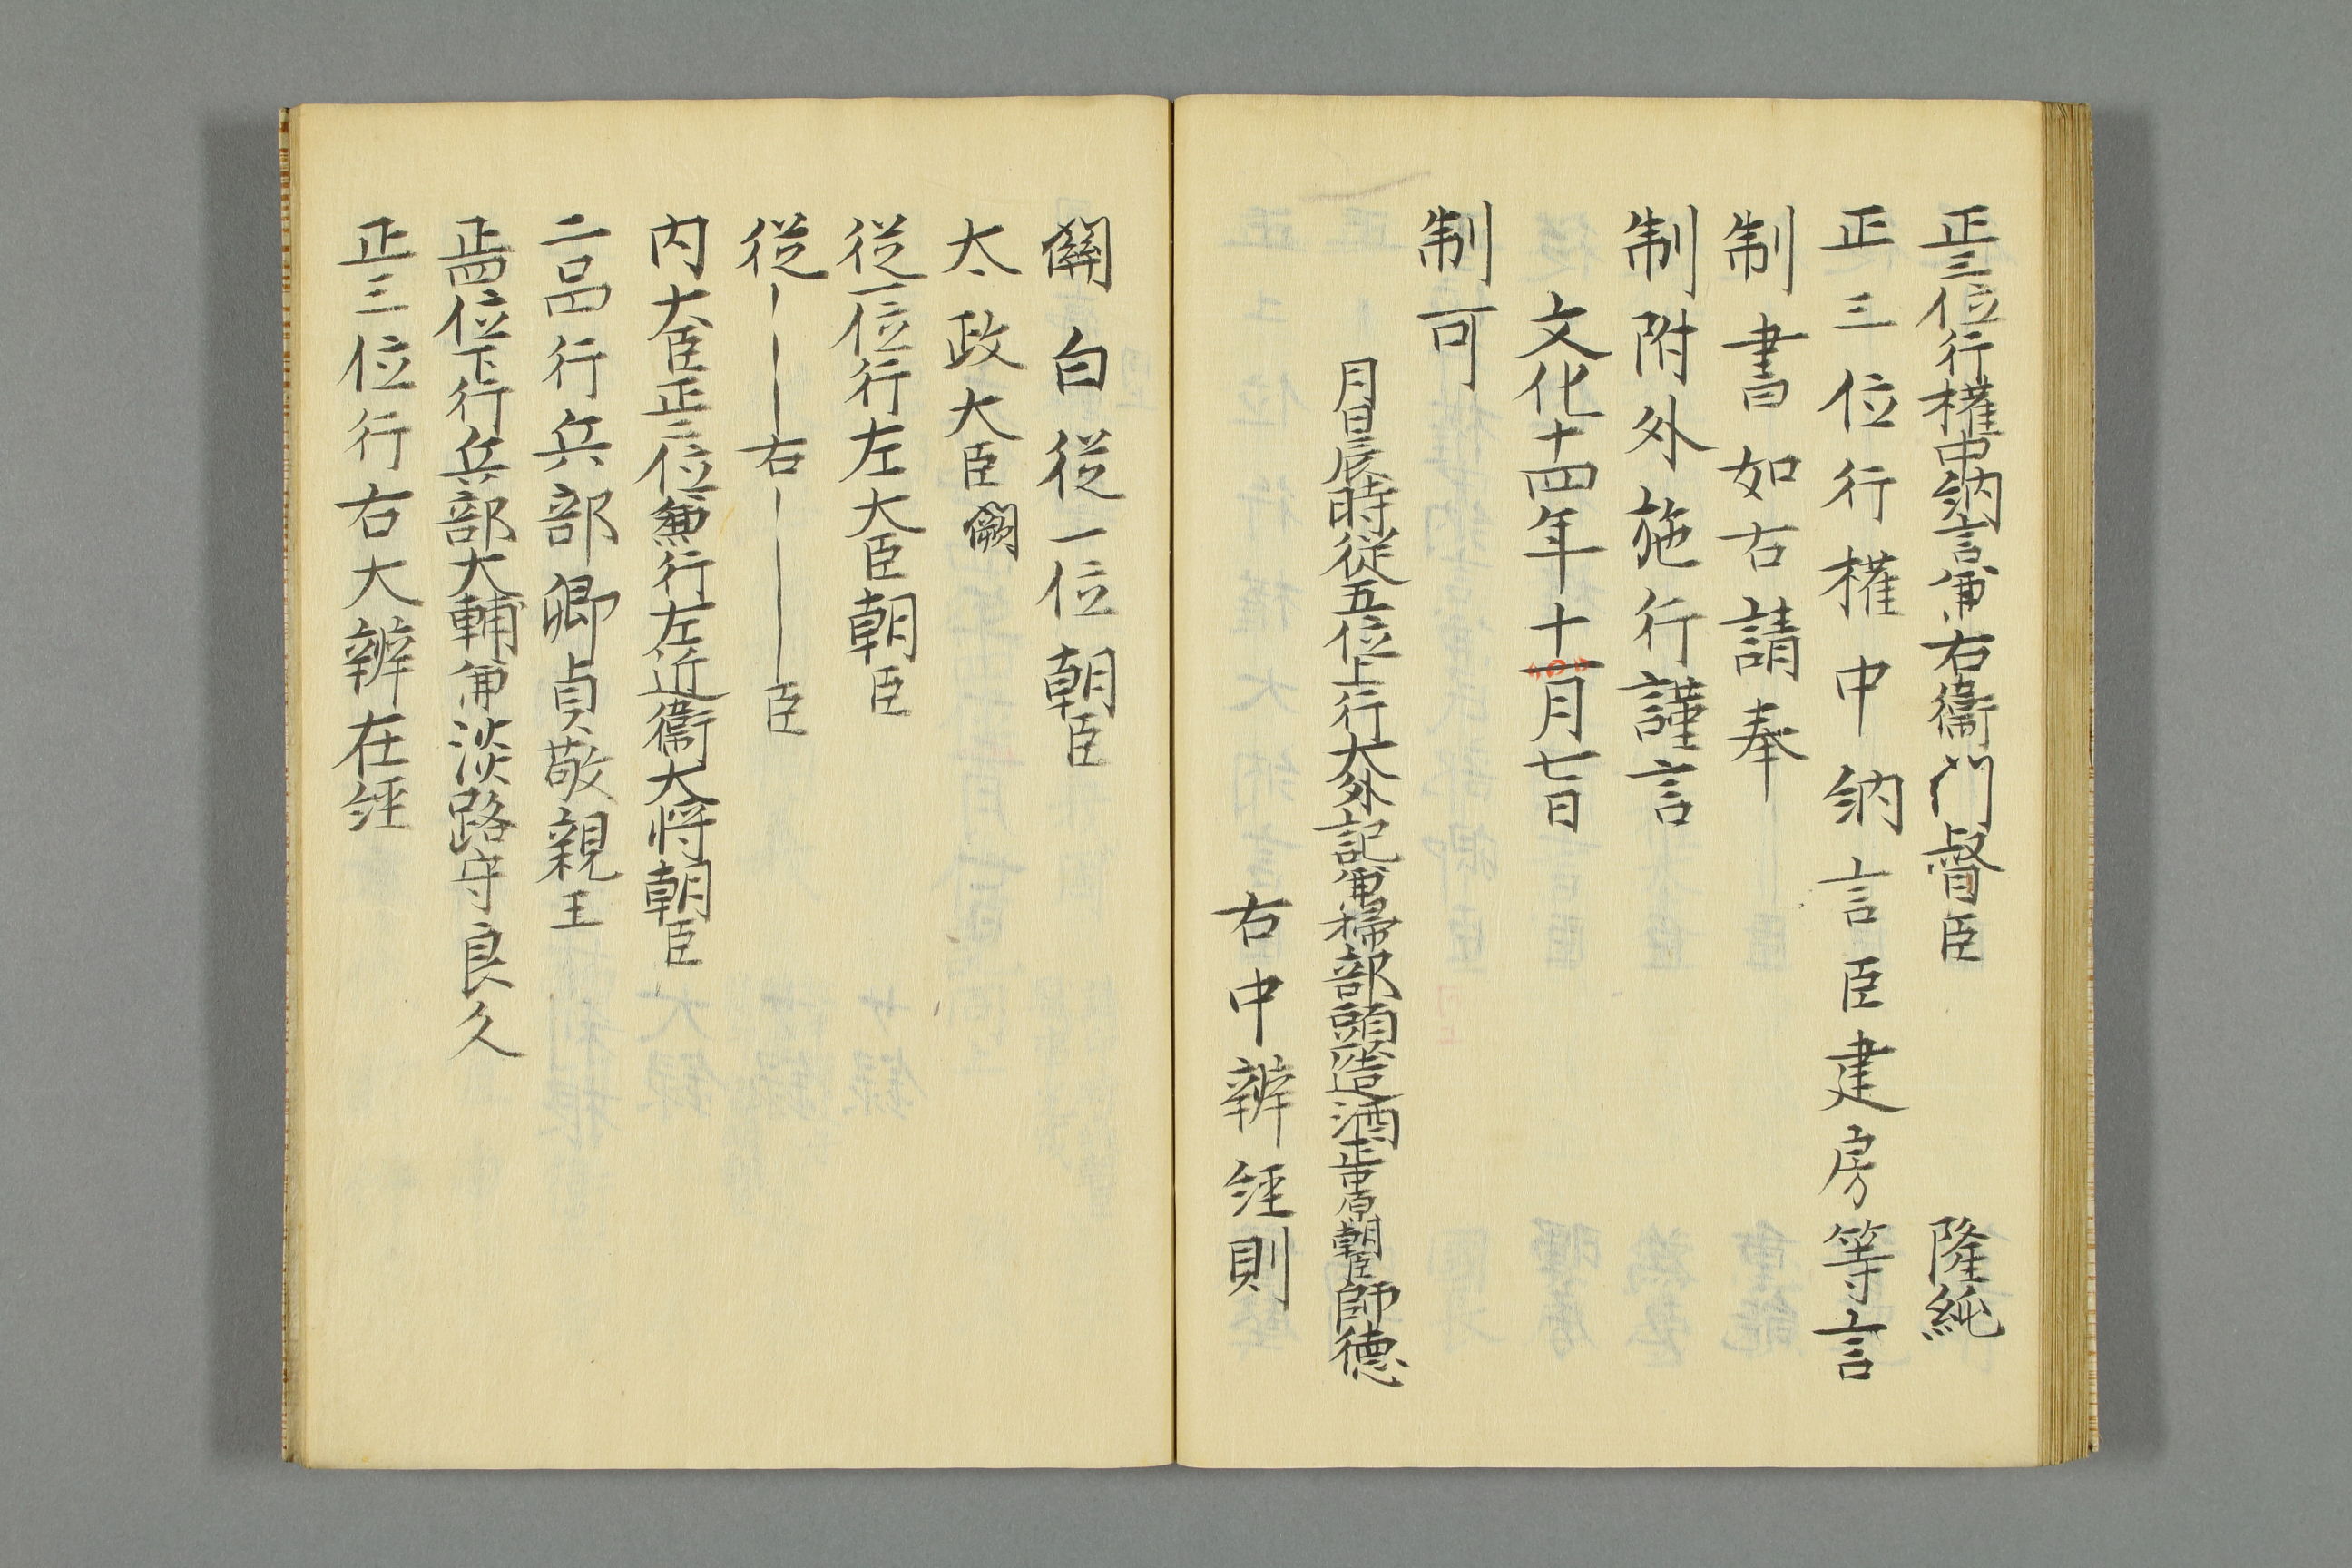 正三位行權中納言兼右衞門督臣　隆純
正三位行權中納言臣建房等言
制書如右請奉
制附外施行謹言
文化十四年十一月七日
制可
月日辰時從五位上行大外記兼掃部頭造酒正中原朝臣師徳
右中辨経則
關白従一位朝臣
太政大臣闕
従一位行左大臣朝臣
従———右———臣
内大臣正二位兼行左近衞大将朝臣
二品行兵部卿貞敬親王
正四位下行兵部大輔兼淡路守良久
正三位行右大辨在経